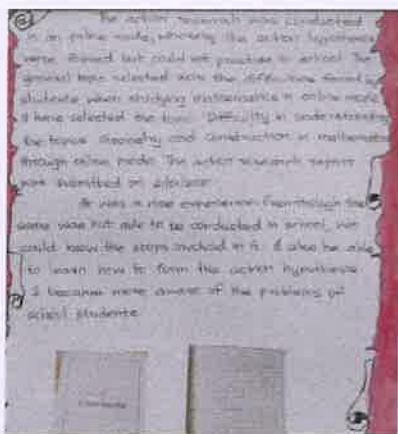 The action research was conducted
in an online mode, whereby the action hypothesis
were formed but could not practise in school. The
general topic selected was the difficulties faced by
students when studying mathematics in online mode.
I have selected the topic Difficulty in understanding
the topics Geometry and construction in mathematics
through online mode. The action research report
was submitted on
It was a nice experience. Even though the
same was not able to be conducted in school, we
could know the steps involved in it. I also be able
to learn how to form the action hypothesis.
I became more aware of the problems of
school students.